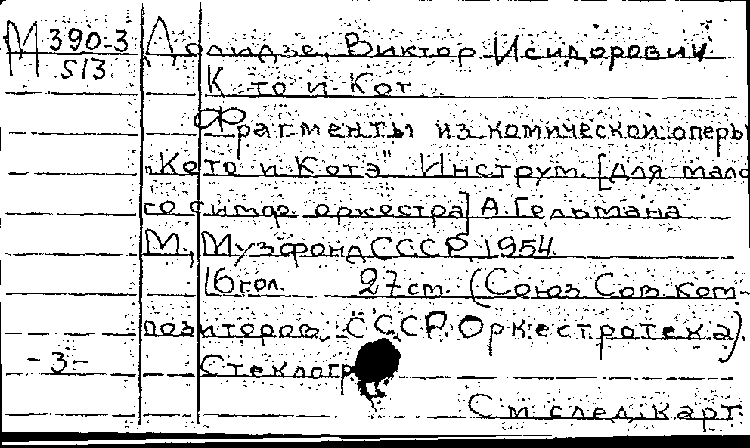 М 390-3 Долидзе, Виктор Исидорович
513
К-то и Кот
Фрагменты из комической оперы
"Кето и Котэ" Инструм. [для мало
го симф. оркестра] А. Гельмана
М., Музфонд СССР, 1954.
16 гол. 27 см. (Союз Сов. ком-
позиторов СССР. Оркестротека).
-3- Стеклогр
См. след. карт.